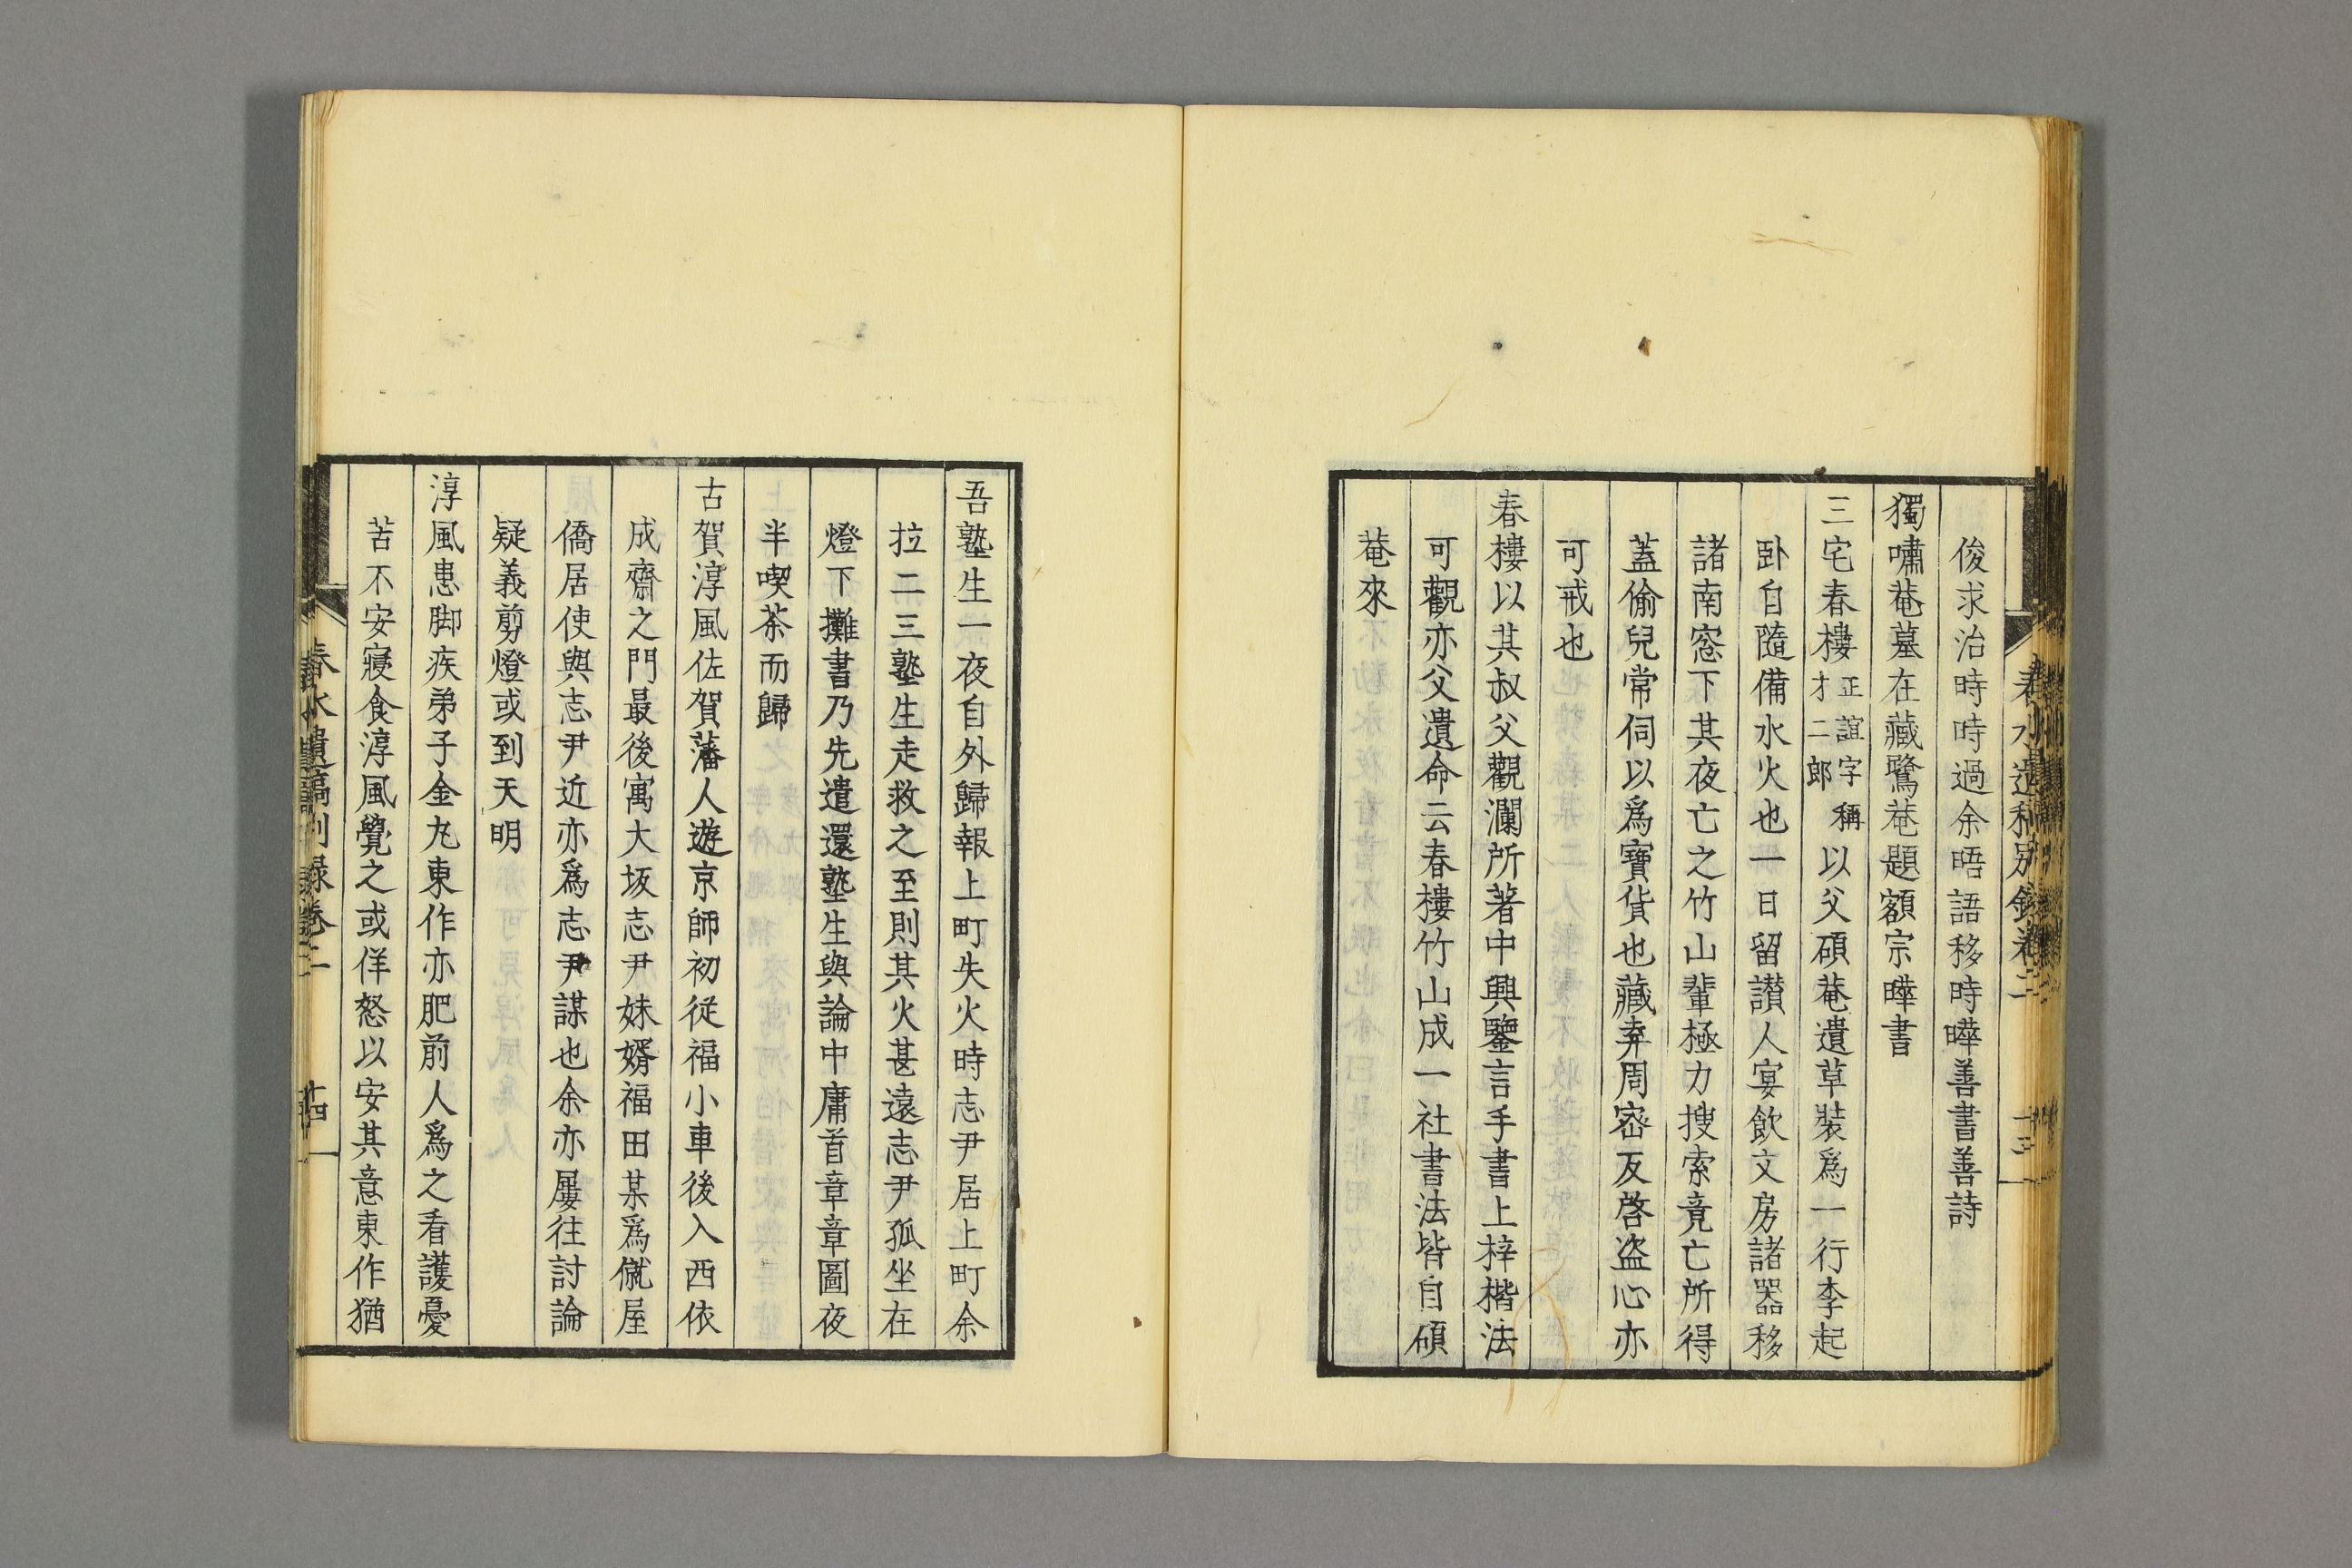 俊求治時時過余晤語移時曄善書善詩
獨嘯菴墓在藏鷺菴題額宗曄書
三宅春樓正誼字稱才二郎以父碩菴遺草裝爲一行李起
卧自隨備水火也一日留讃人宴飲文房諸器移
諸南窓下其夜亡之竹山輩極力搜索竟亡所得
蓋偷兒常伺以爲寶貨也藏弆周密反啓盜心亦
可戒也
春樓以其叔父觀瀾所著中興鑒言手書上梓楷法
可觀亦父遺命云春樓竹山成一社書法皆自碩
菴來
吾塾生一夜自外歸報上町失火時志尹居上町余
拉二三塾生走救之至則其火甚遠志尹孤坐在
燈下攤書乃先遣還塾生與論中庸首章章圖夜
半喫茶而歸
古賀淳風佐賀藩人遊京師初從福小車後入西依
成齋之門最後寓大坂志尹妹婿福田某爲僦屋
僑居使與志尹近亦爲志尹謀也余亦屢往討論
疑義剪燈或到天明
淳風患脚疾弟子金丸東作亦肥前人爲之看護憂
苦不安寢食淳風覺之或佯怒以安其意東作猶
春水遺稿別録卷二
十四